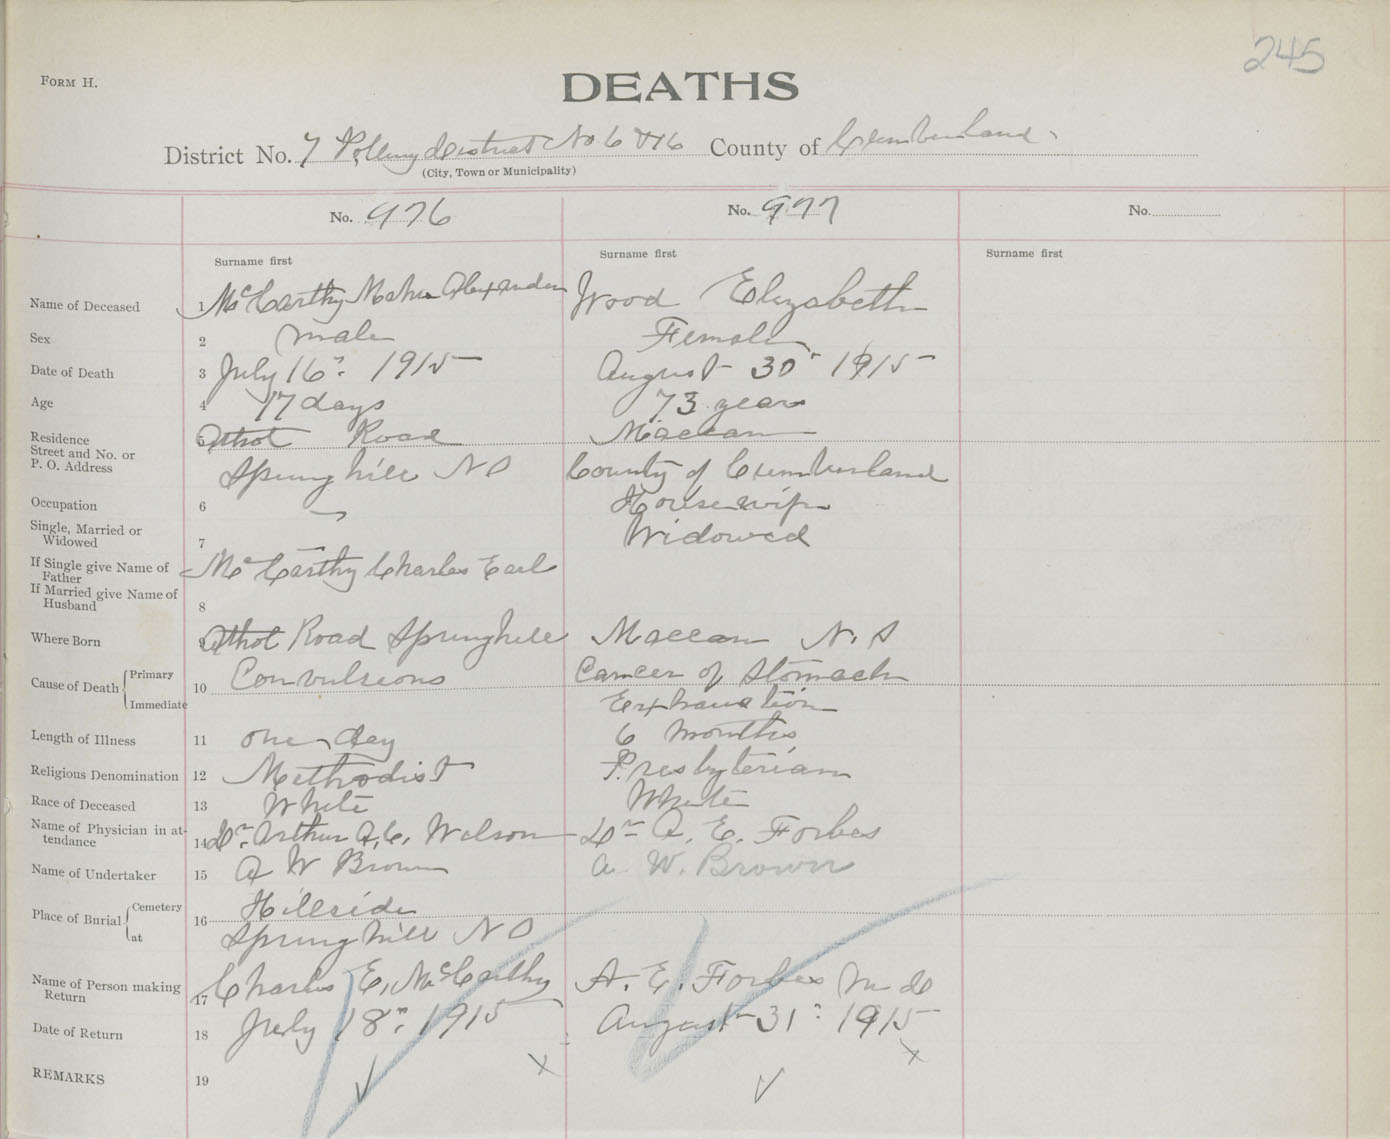 245
FORM H.
DEATHS
District No. 7 Polling District No 6 & 16 County of Cumberland
(City, Town or Municipality)
No. 976 No. 977 No.
Surname first Surname first Surname first
Name of Deceased 1 McCarthy Alexander Wood Elizabeth
Sex 2 male Female
Date of Death 3 July 16" 1915 August 30" 1915
Age 4 17 days 73 years
Residence 5 Athol Road Maccan
Street and No. or
P. O. Address Springhill NS County of Cumberland
Occupation 6 Housewife
Single, Married or
Widowed 7 Widowed
If Single give Name of
Father McCarthy Charles Earl
If Married give Name of
Husband 8
Where Born 9 Athol Road Springhill Maccan N.S
Cause of Death Primary 10 Convulsions Cancer of Stomach
Immediate Exhaustion
Length of Illness 11 one day 6 months
Religious Denomination 12 Methodist Presbyterian
Race of Deceased 13 White White
Name of Physician in at-
tendance 14 Dr. Arthur A.C. Wilson Dr A. E. Forbes
Name of Undertaker 15 A W Brown A. W. Brown
Place of Burial Cemetery 16 Hillside
at Springhill NS
Name of Person making
Return 17 Charles E. McCarthy A. E. Forbes M D
Date of Return 18 July 18" 1915 August 31" 1915
REMARKS 19